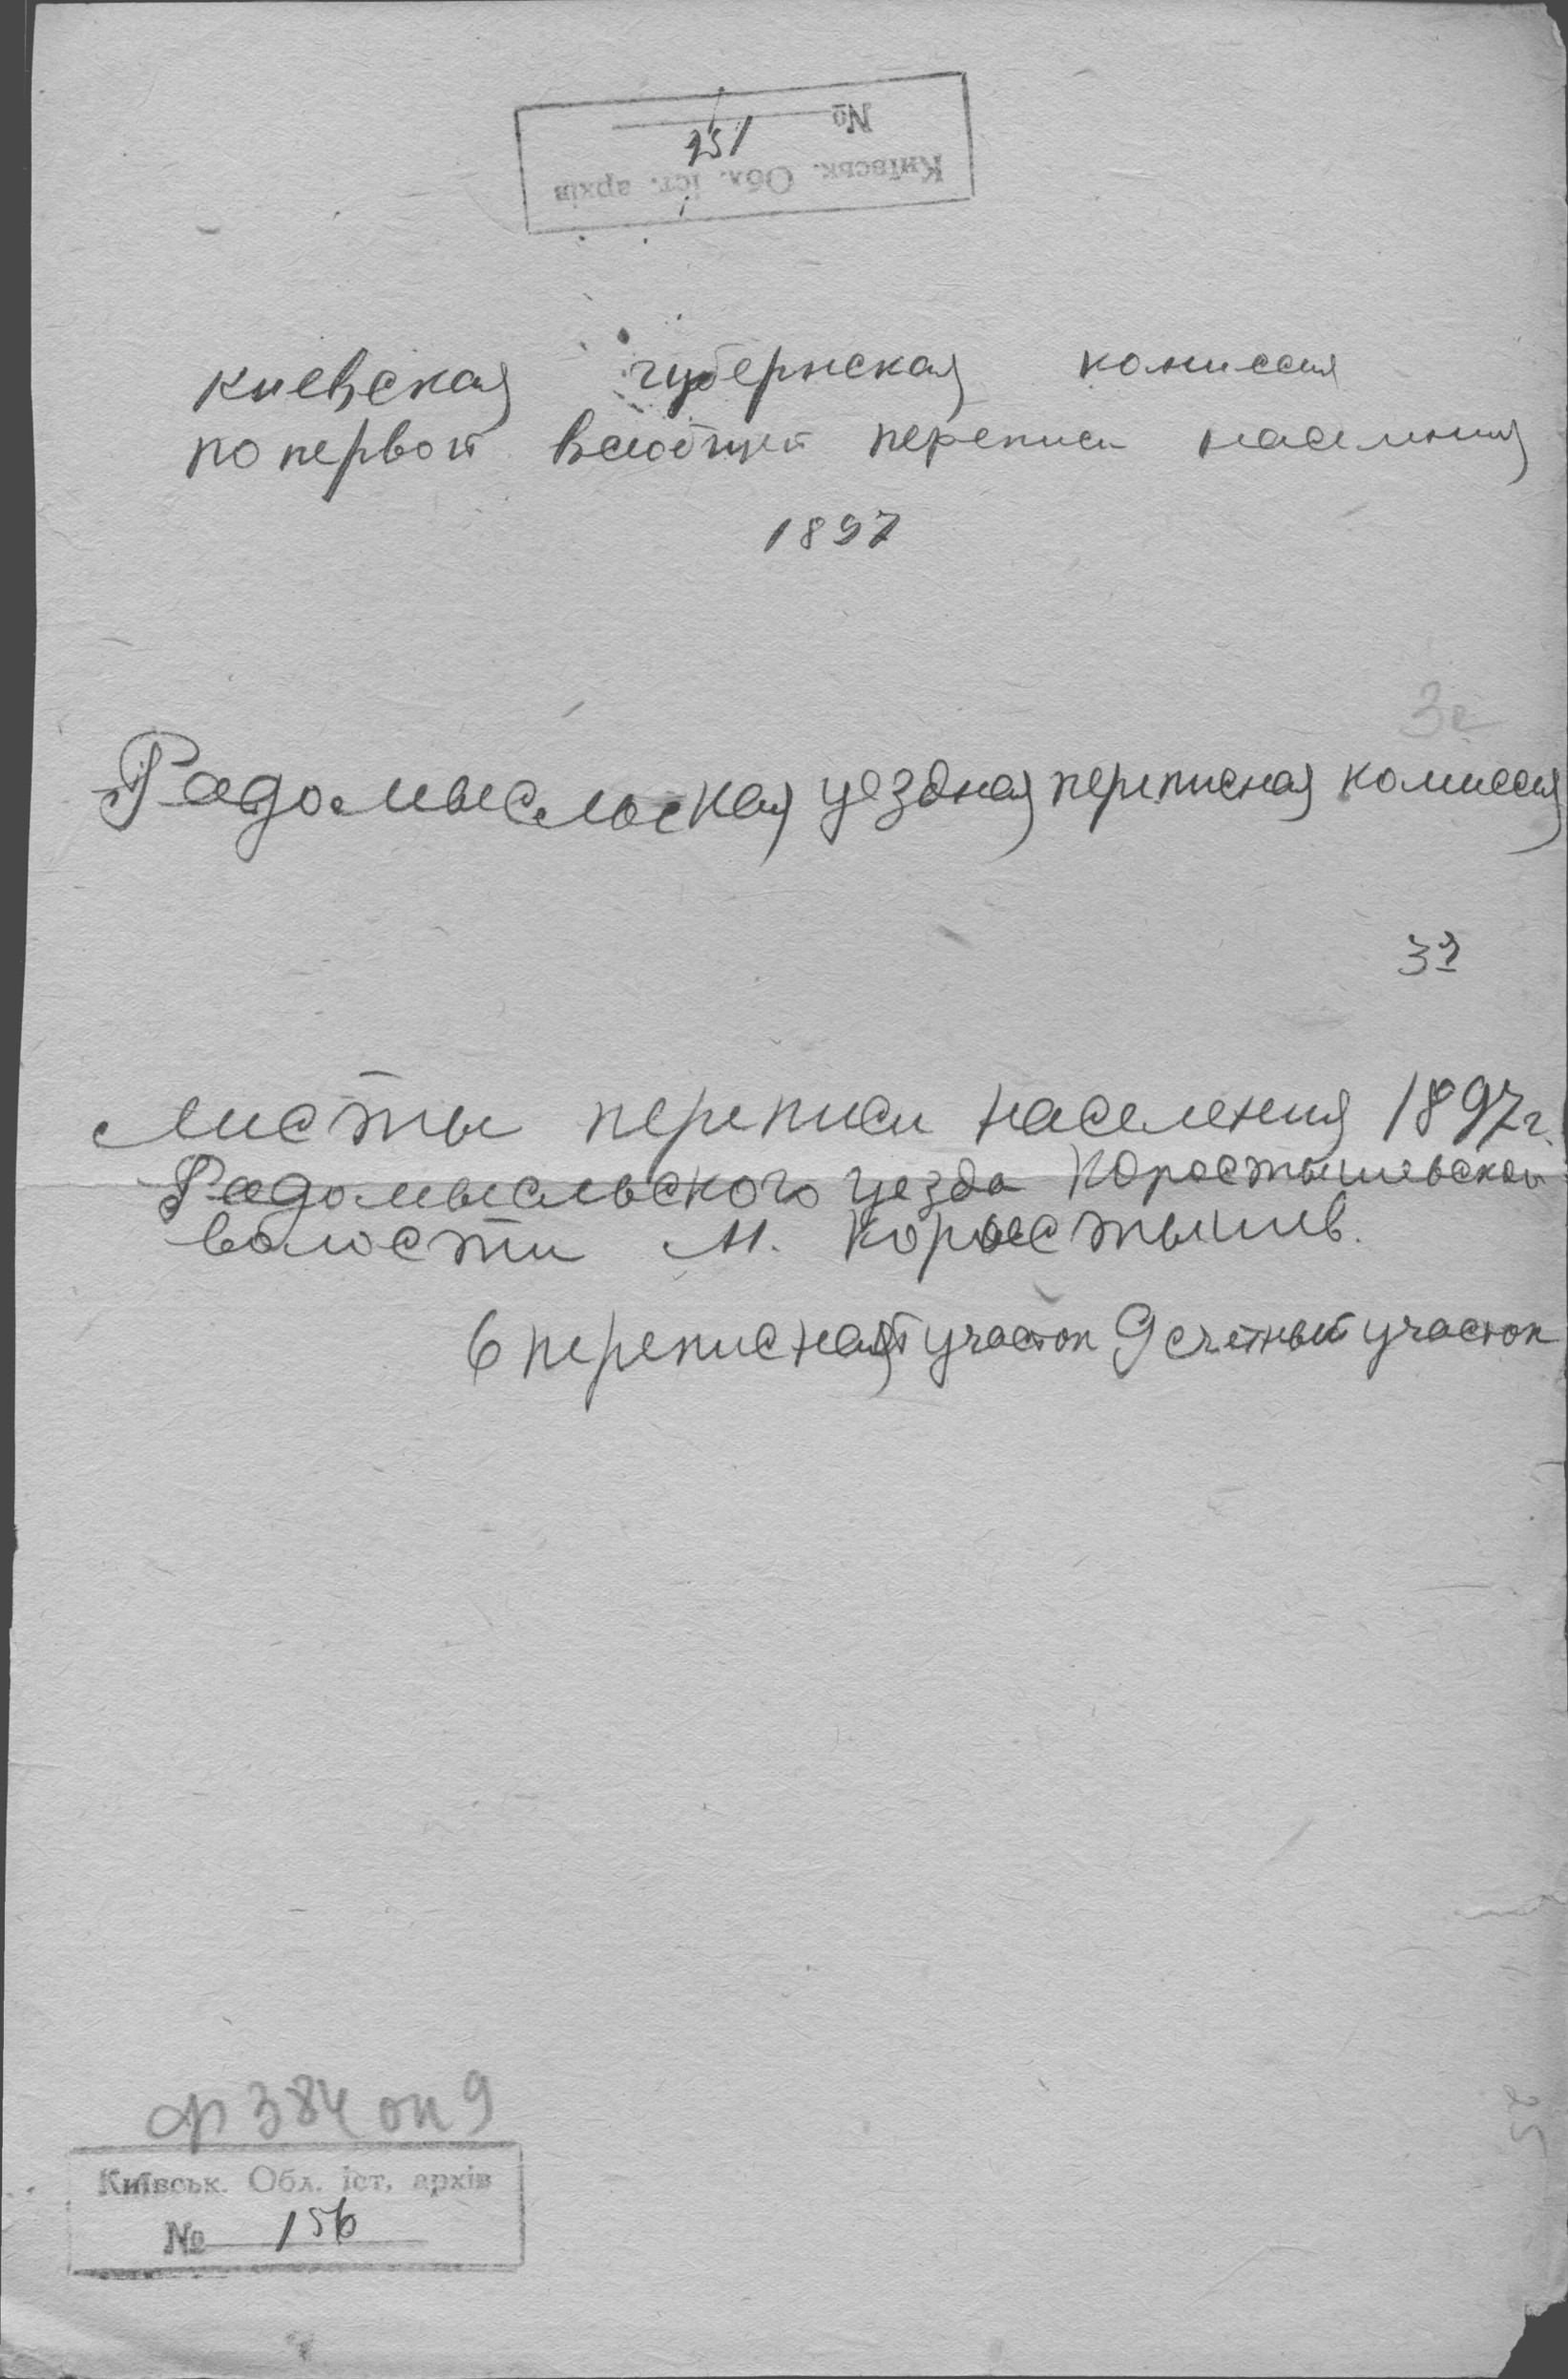 № 251
Київськ. Обл. іст. архів
Киевская губернская комиссия
по первой всеобщей переписи населения
1897
Радомысльская уездная переписная комиссия
Листы переписи населения 1897 г.
Радомысльского уезда Коростышевской
волости м. Коростышев.
6 переписной участок 9 счетный участок
ф 384 оп 9
Київськ. Обл. іст. архів
№ 156